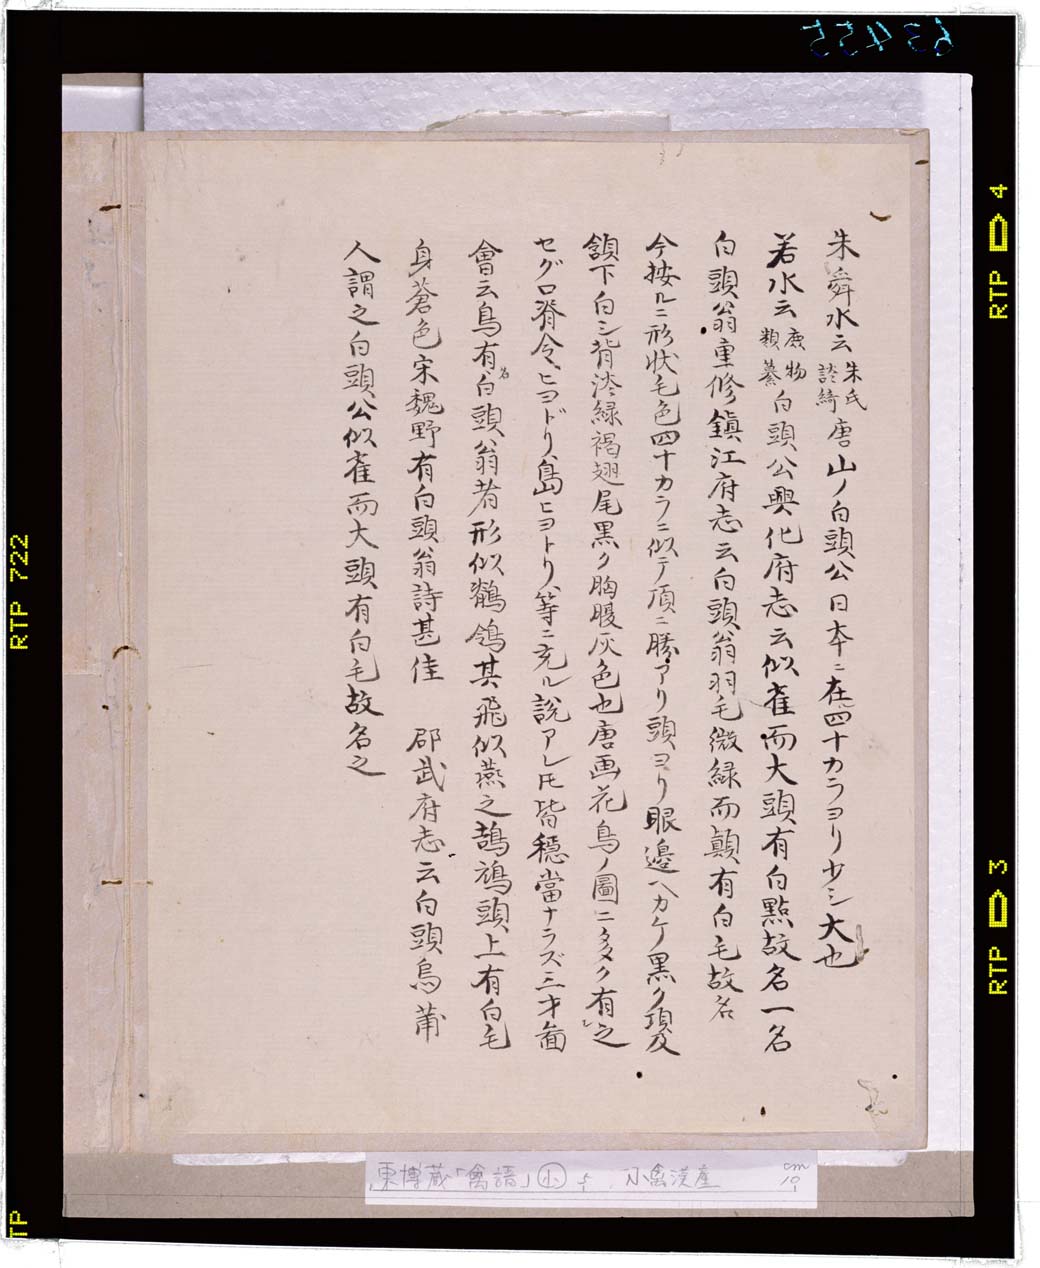 朱舜水云朱氏談綺唐山ノ白頭公日本ニ在四十カラヨリ少シ大也
若水云庶物類纂白頭公興化府志云似雀而大頭有白點故名一名
白頭翁重修鎮江府志云白頭翁羽毛微緑而顛有白毛故名
今按ルニ形状毛色四十カラニ似テ頂ニ勝アリ頭ヨリ眼邉ヘカケ黒ク項及
頷下白シ背淡緑褐翅尾黒ク胸腹灰色也唐画花鳥ノ圖ニ多ク有之
セグロ脊令、ヒヨドリ、島ヒヨトリ、等ニ充ル説アレ𪜈皆穏當ナラズ三才圖
會云鳥有名白頭翁者形似鶺鴒其飛似燕之鵲鴂頭上有白毛
身蒼色宋魏野有白頭翁詩甚佳　邵武府志云白頭烏莆
人謂之白頭公似雀而大頭有白毛故名之
東博蔵「禽譜」小 5 小禽漢産 cm 10
63455
RTP 4
RTP 3
RTP 722
RTP